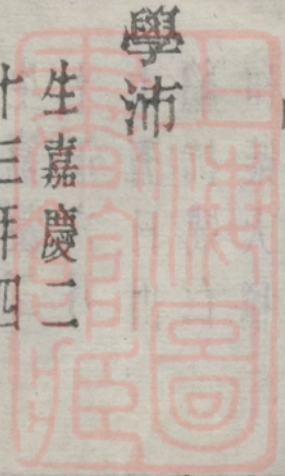 學沛
生嘉慶二
十三年四
上海圖
書館藏